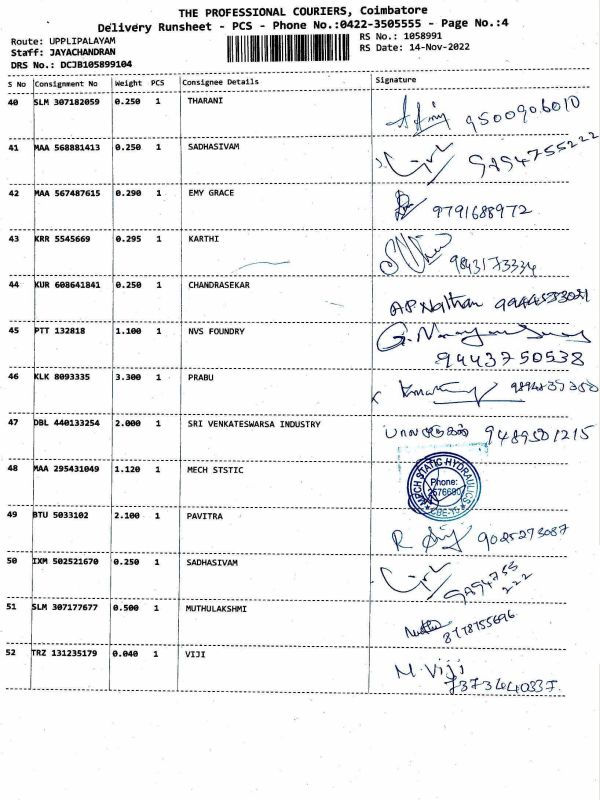 THE PROFESSIONAL COURIERS, Coimbatore
Delivery Runsheet - PCS - Phone No.:0422-3505555 - Page No.:4
Route: UPPLIPALAYAM
Staff: JAYACHANDRAN
DRS No.: DCJB105899104
RS No.: 1058991
RS Date: 14-Nov-2022
S No Consignment No Weight PCS Consignee Details Signature
40 SLM 307182059 0.250 1 THARANI 9500906010
41 MAA 568881413 0.250 1 SADHASIVAM 9894755222
42 MAA 567487615 0.290 1 EMY GRACE 9791688972
43 KRR 5545669 0.295 1 KARTHI 9843173334
44 KUR 608641841 0.250 1 CHANDRASEKAR AP Nathan
45 PTT 132818 1.100 1 NVS FOUNDRY
9443750538
46 KLK 8093335 3.300 1 PRABU
47 DBL 440133254 2.000 1 SRI VENKATESWARSA INDUSTRY 9489501215
48 MAA 295431049 1.120 1 MECH STSTIC
MECH STATIC HYDRAULICS
Phone:
2576680
CBE-15
49 BTU 5033102 2.100 1 PAVITRA
9025273087
50 IXM 502521670 0.250 1 SADHASIVAM
9894755
222
51 SLM 307177677 0.500 1 MUTHULAKSHMI
8778755696
52 TRZ 131235179 0.040 1 VIJI M. Viji
7373440337.